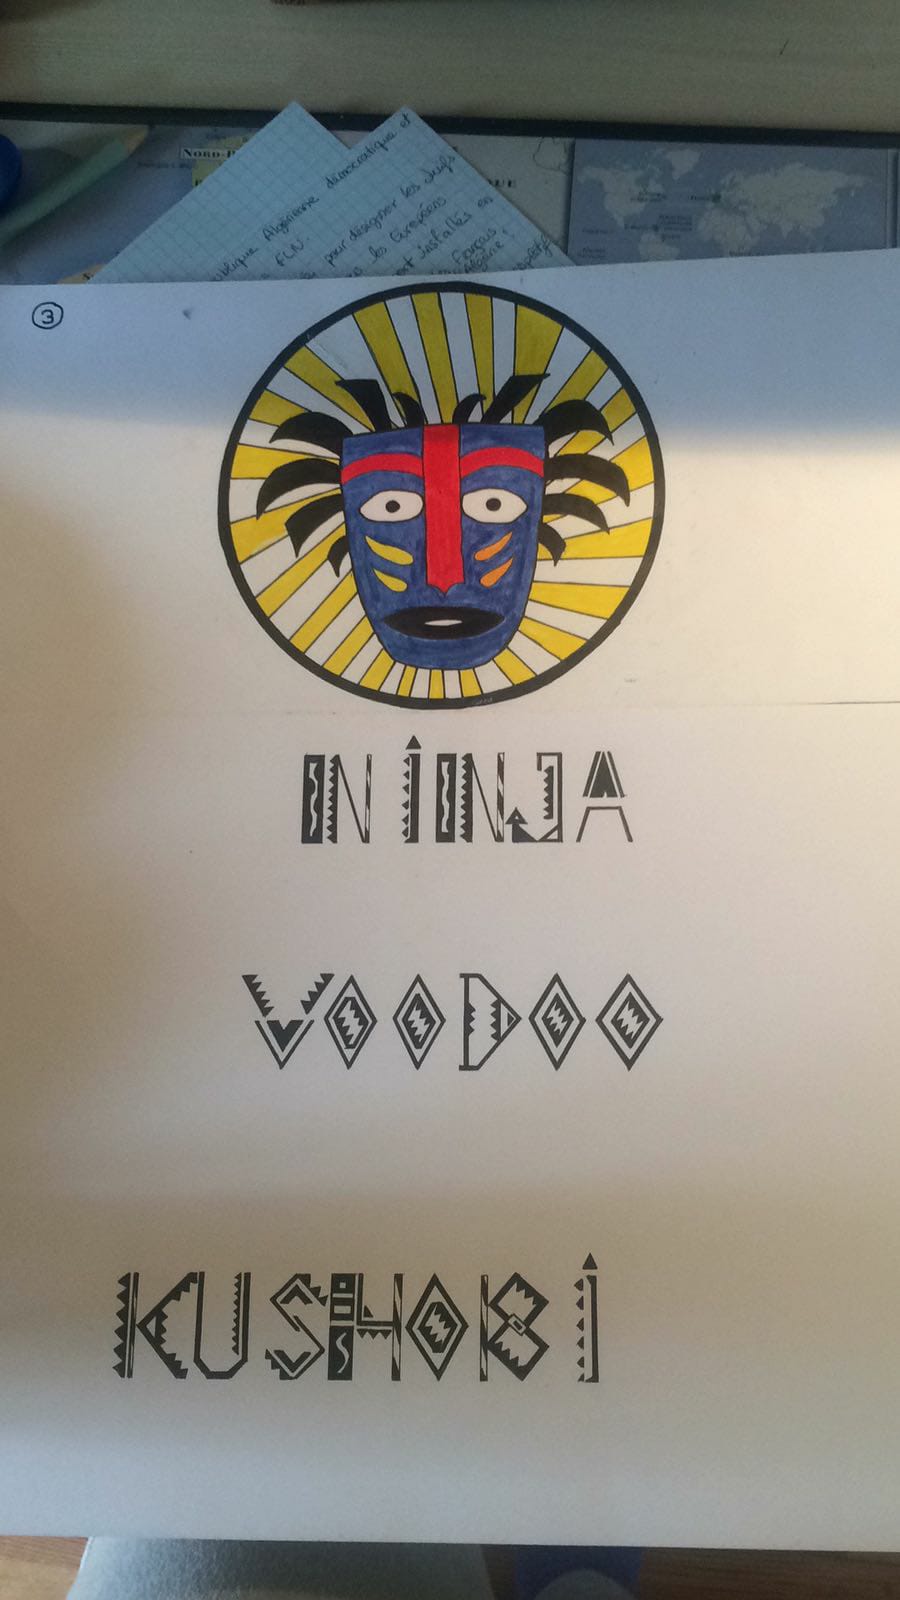 NORD-
QUE
Algérienne démocratique et
FLN.
pour désigner les Juifs
les Européens
installés en
Français
Algérie
③
NINJA
VOODOO
KUSHOBI